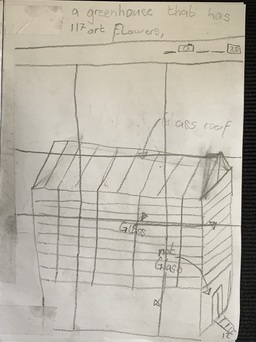 a greenhouse that has
117 art flowers,
Glass roof
Glass
not
Glass